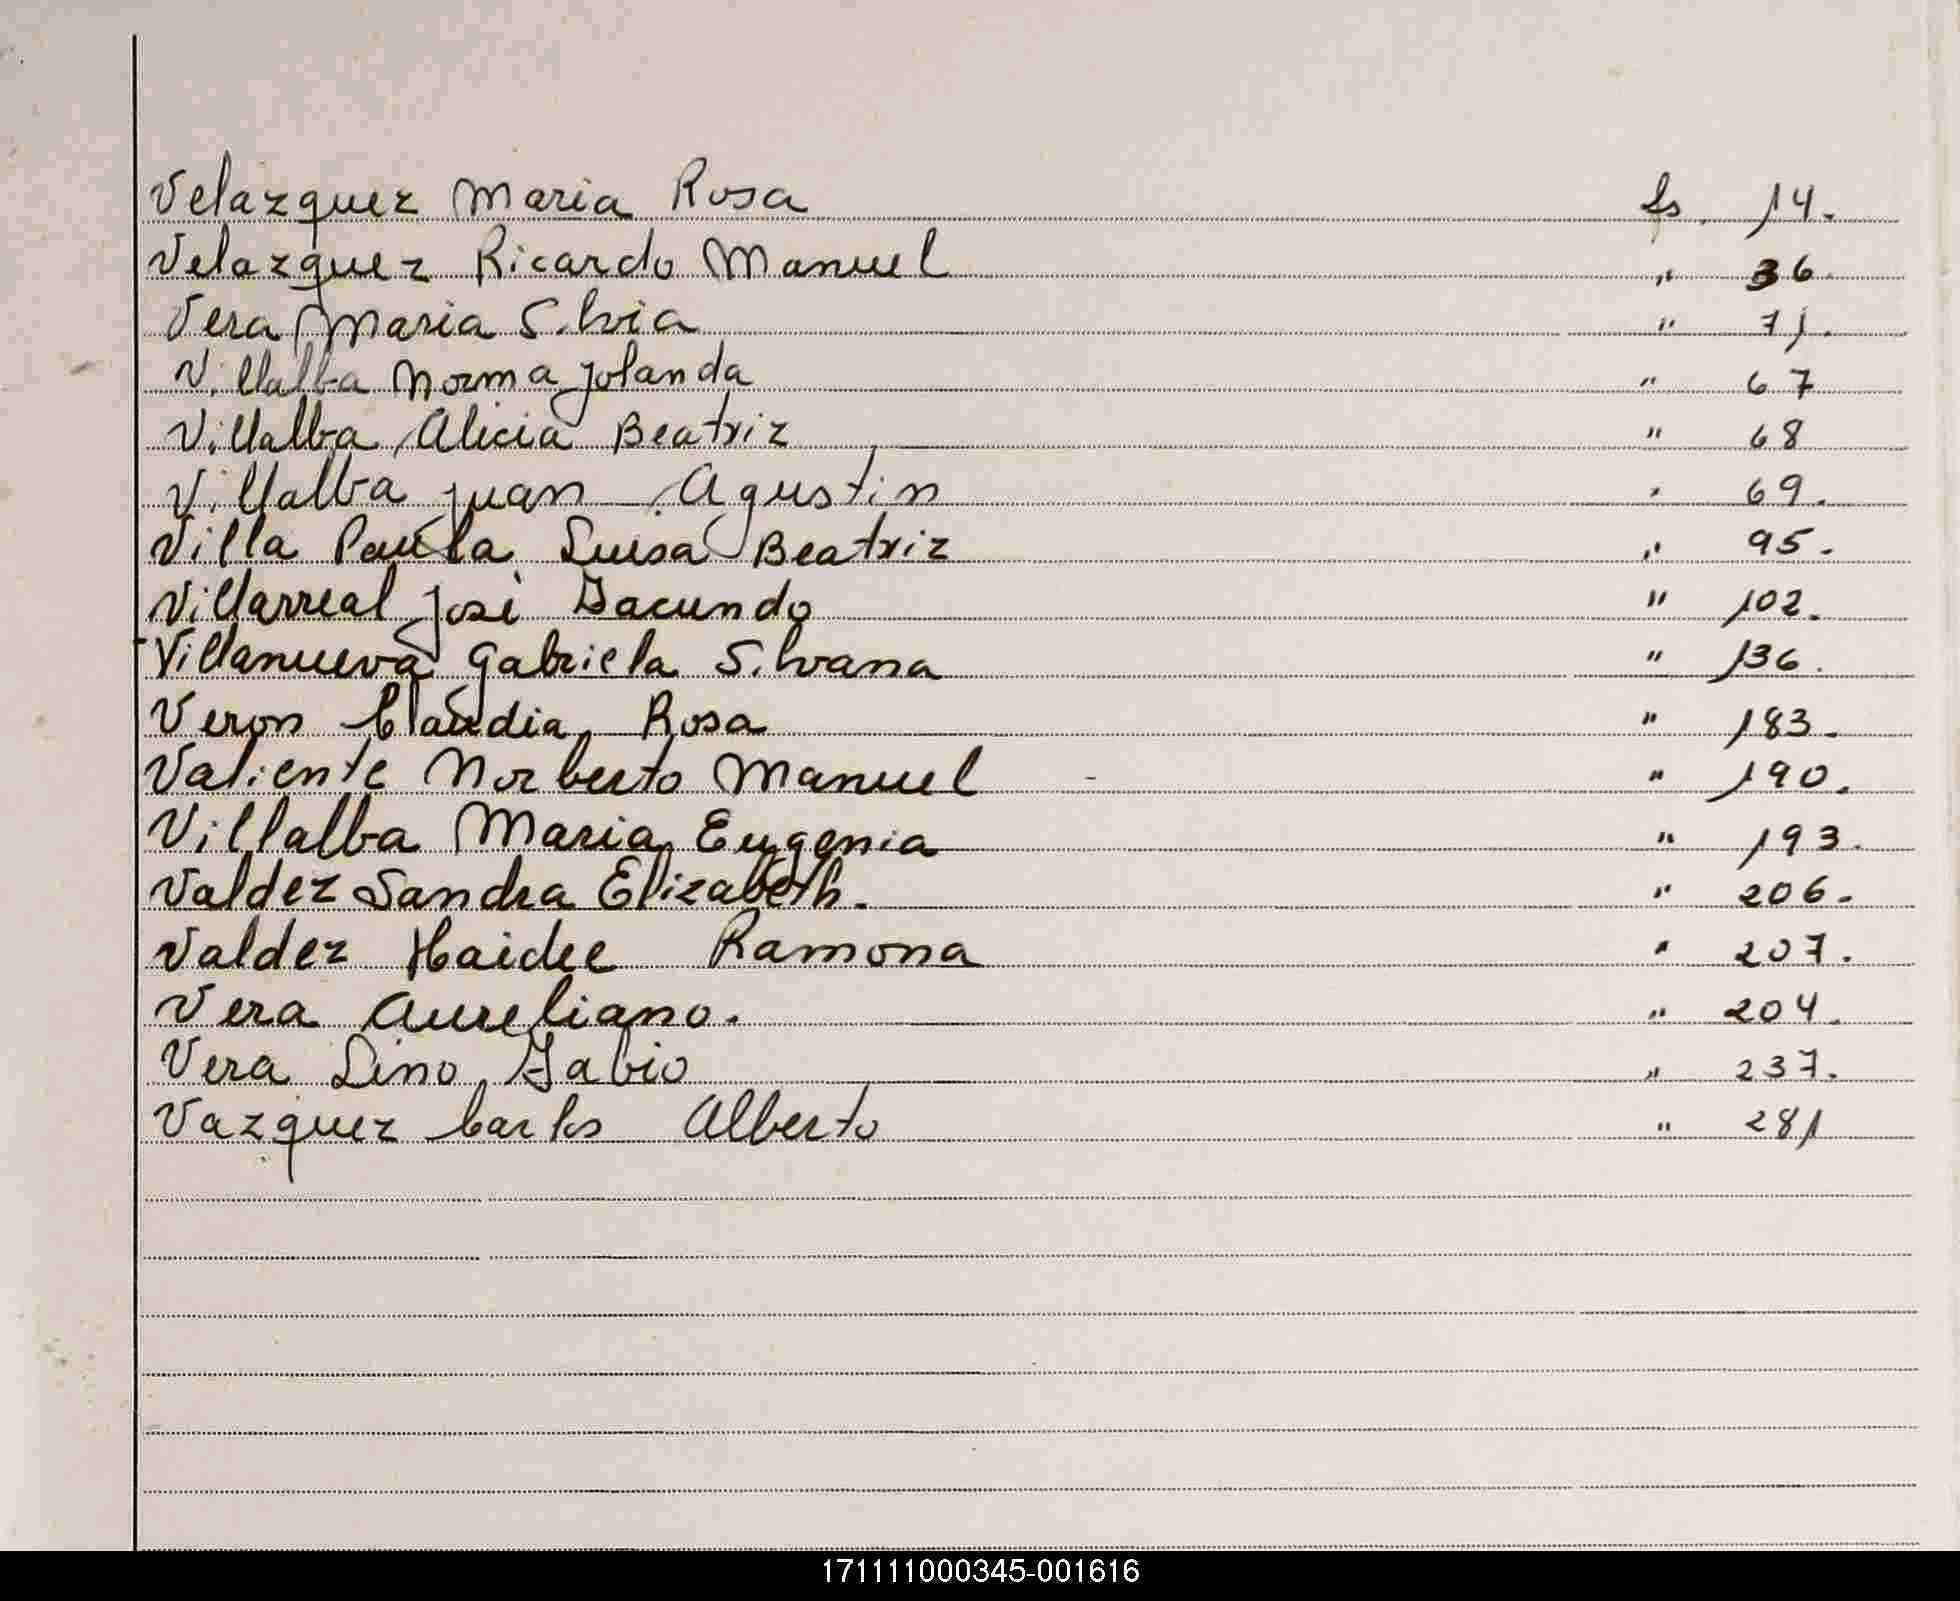 Velazquez Maria Rosa fs. 14.
Velazquez Ricardo Manuel " 36.
Vera Maria Silvia " 71.
Villalba Norma Jolanda " 67
Villalba Alicia Beatriz " 68
Villalba Juan Agustin " 69.
Villa Paula Luisa Beatriz " 95.
Villarreal José Facundo " 102.
Villanueva Gabriela Silvana " 136.
Veron Claudia Rosa " 183.
Valiente Norberto Manuel - " 190.
Villalba Maria Eugenia " 193.
Valdez Sandra Elizabeth. " 206.
Valdez Haidee Ramona " 207.
Vera Aureliano. " 204.
Vera Lino Fabio " 237.
Vazquez Carlos Alberto " 281
171111000345-001616